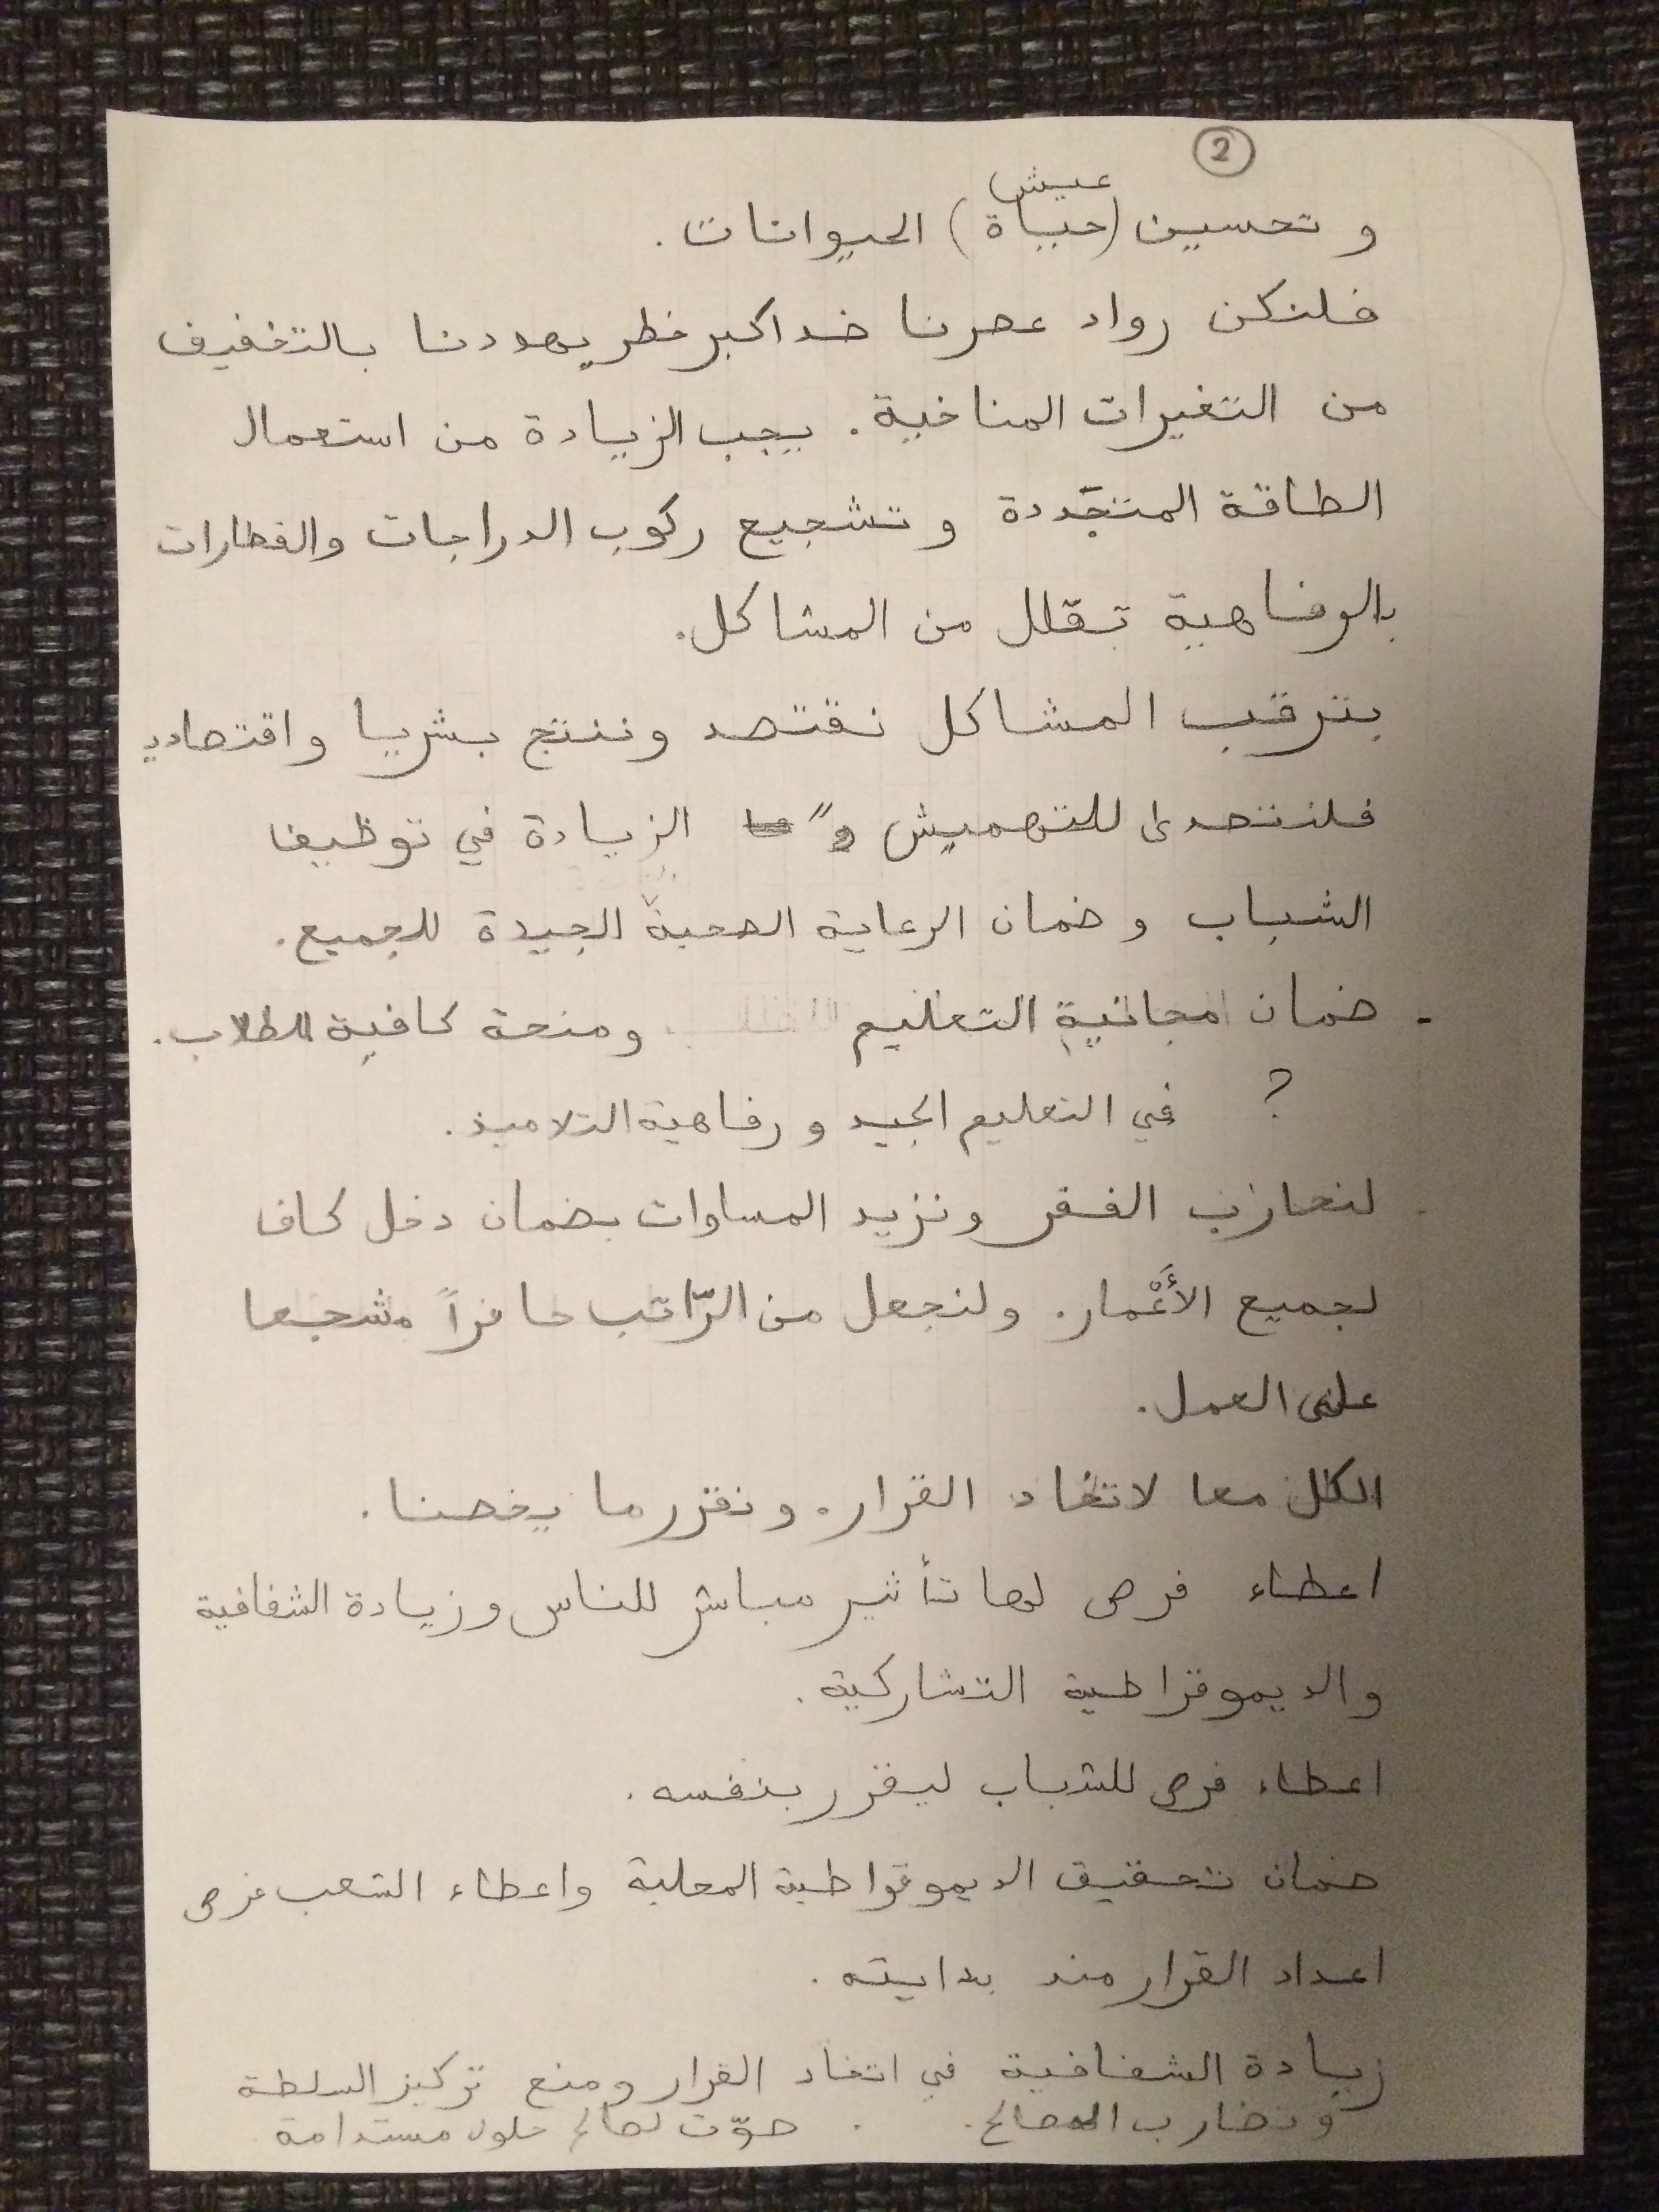 2
عيش
و تحسين (حياة) الحيوانات.
فلنكن رواد عصرنا ضد اكبر خطر يهددنا بالتخفيف
من التغيرات المناخية. يجب الزيادة من استعمال
الطاقة المتجّددة و تشجيع ركوب الدراجات والقطارات
بالرفاهية تقلل من المشاكل.
بترقب المشاكل نقتصد وننتج بشريا واقتصاديا
فلنتحدى للتهميش و الزيادة في توظيف
الشباب و ضمان الرعاية الصحية الجيدة للجميع.
- ضمان مجانية التعليم ومنحة كافية للطلاب.
? في التعليم الجيد و رفاهية التلاميذ.
لنحارب الفقر ونزيد المساوات بضمان دخل كاف
لجميع الأَعْمار. ولنجعل من الرّاتب حافزاً مشجعا
على العمل.
الكل معا لاتخاد القرار. ونقرر ما يخصنا.
اعطاء فرص لها تأثير مباشر للناس وزيادة الشفافية
والديموقراطية التشاركية.
اعطاء فرص للشباب ليقرر بنفسه.
ضمان تحقيق الديموقراطية المحلية واعطاء الشعب فرص
اعداد القرار مند بدايته.
زيادة الشفافية في اتخاد القرار ومنع تركيز السلطة
وتضارب المصالح. صوّت لصالح حلول مستدامة